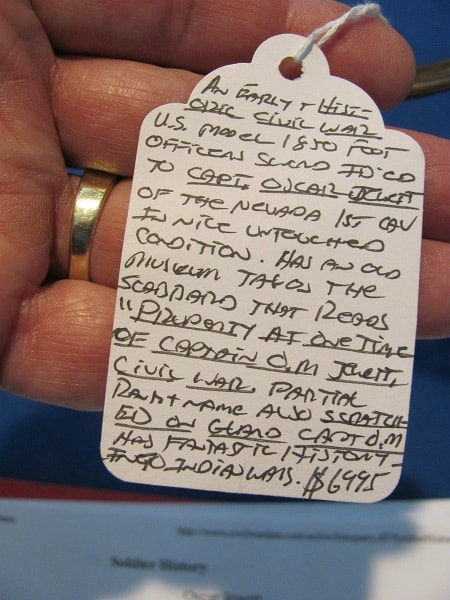 AN EARLY + HIST-
ORIC CIVIL WAR
U.S. MODEL 1850 FOOT
OFFICERS SWORD ID'ED
TO CAPT. OSCAR JEWETT
OF THE NEVADA 1ST CAV
IN NICE UNTOUCHED
CONDITION. HAS AN OLD
MUSEUM TAG ON THE
SCABBARD THAT READS
"PROPERTY AT ONE TIME
OF CAPTAIN O.M JEWETT,
CIVIL WAR. PARTIAL
RANK + NAME ALSO SCRATCH-
ED ON GUARD CAPT O.M
HAS FANTASTIC HISTORY-
INDIAN WARS. $6495
Soldier History